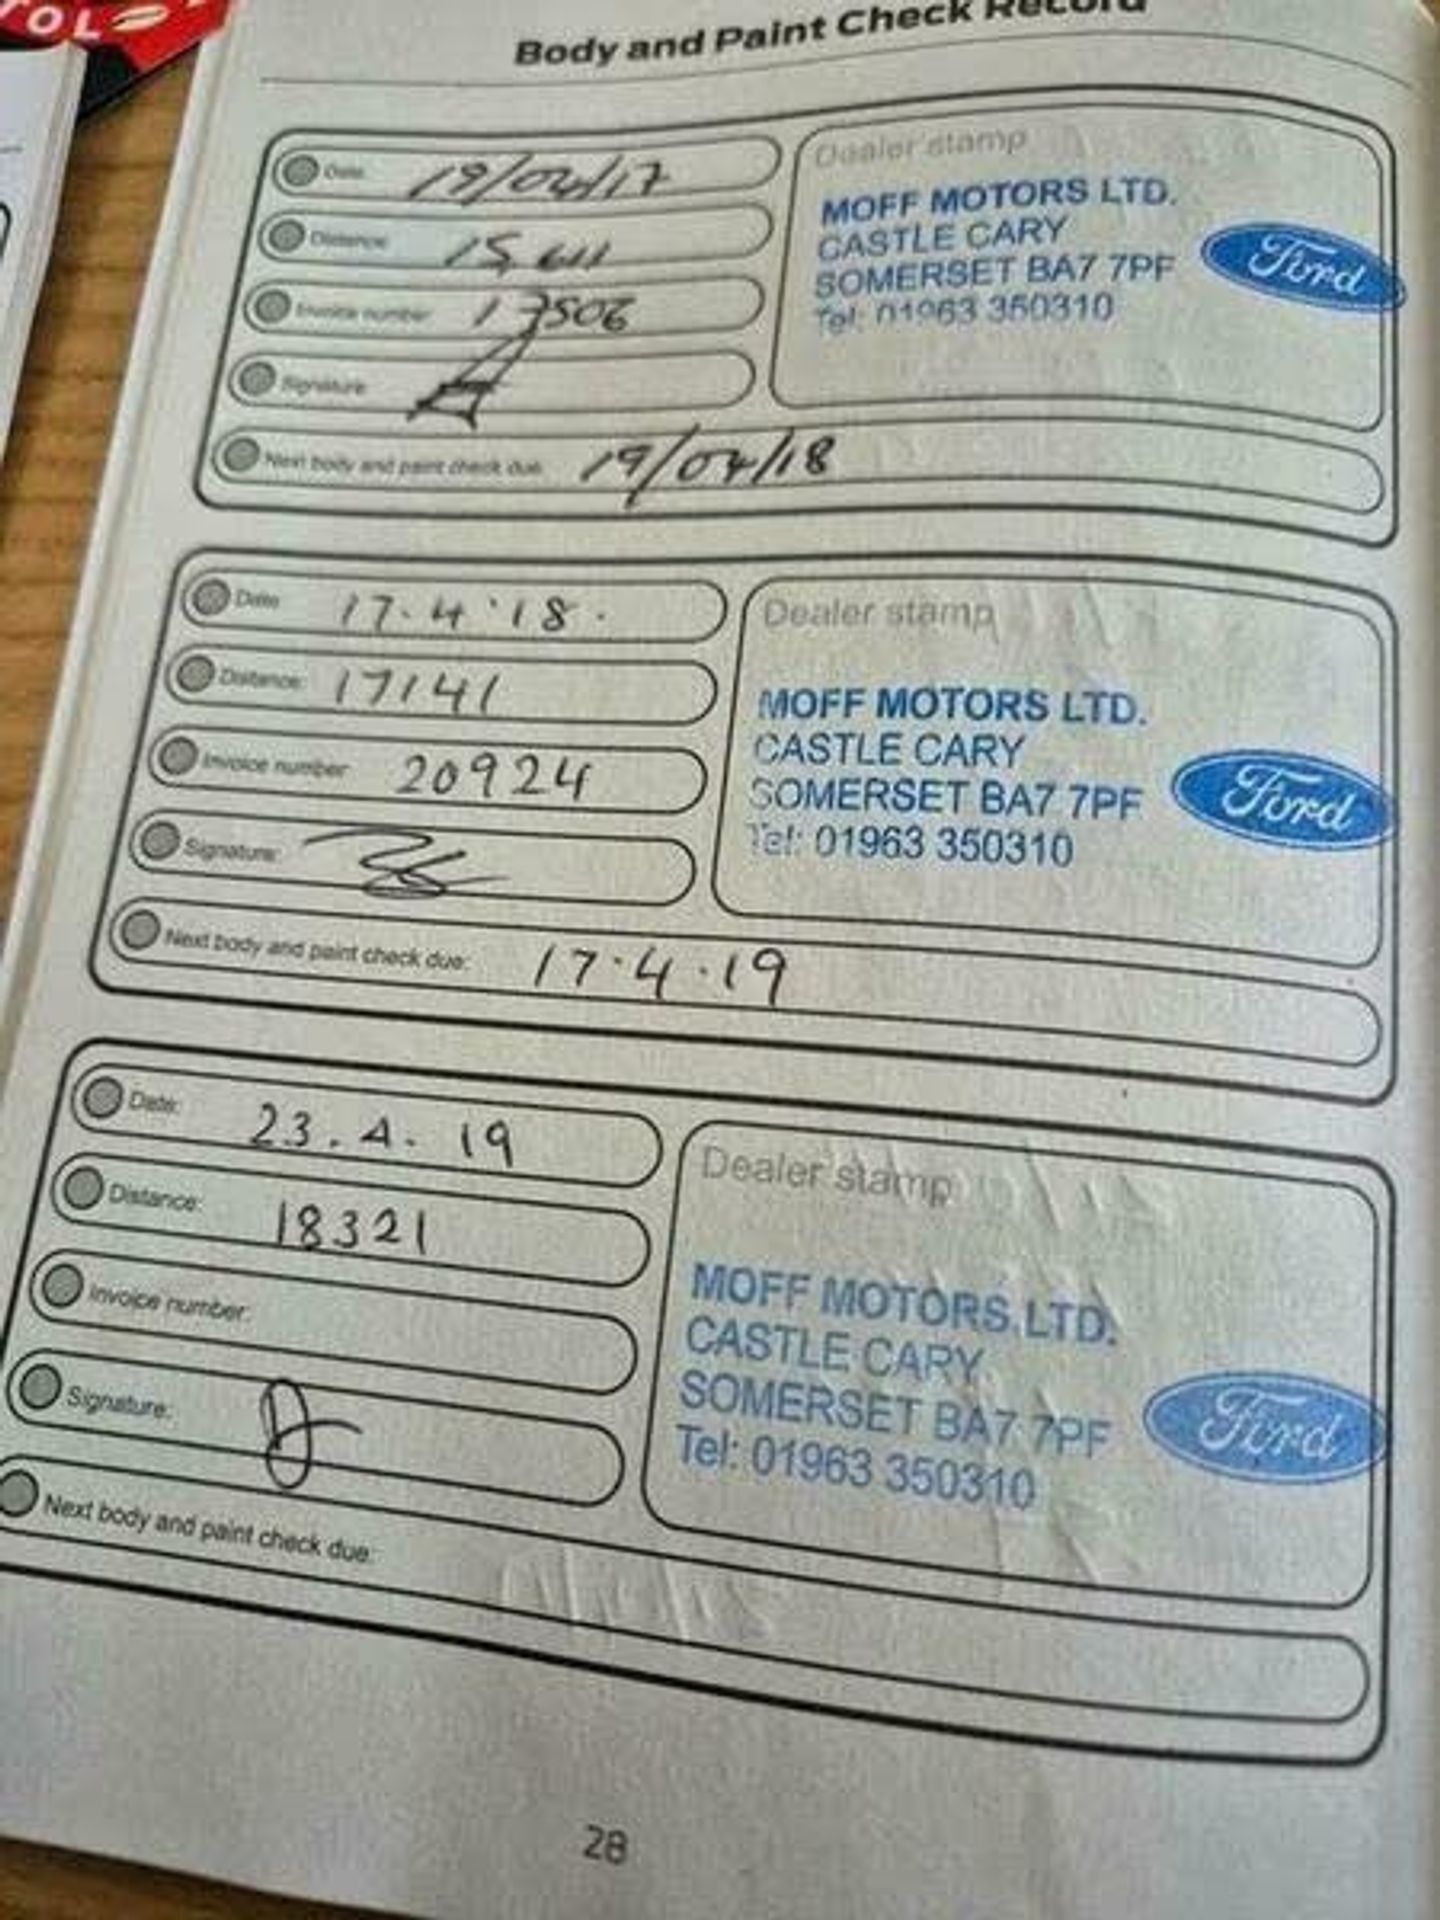 OL
Body and Paint Check Record
Date: 19/04/17
Distance: 15,611
Invoice number: 17506
Signature:
Next body and paint check due: 19/04/18
Dealer stamp
MOFF MOTORS LTD.
CASTLE CARY
SOMERSET BA7 7PF
Tel: 01963 350310
Ford
Date: 17.4.18.
Distance: 17141
Invoice number: 20924
Signature:
Next body and paint check due: 17.4.19
Dealer stamp
MOFF MOTORS LTD.
CASTLE CARY
SOMERSET BA7 7PF
Tel: 01963 350310
Ford
Date: 23.4.19
Distance: 18321
Invoice number:
Signature:
Next body and paint check due:
Dealer stamp
MOFF MOTORS LTD.
CASTLE CARY
SOMERSET BA7 7PF
Tel: 01963 350310
Ford
28